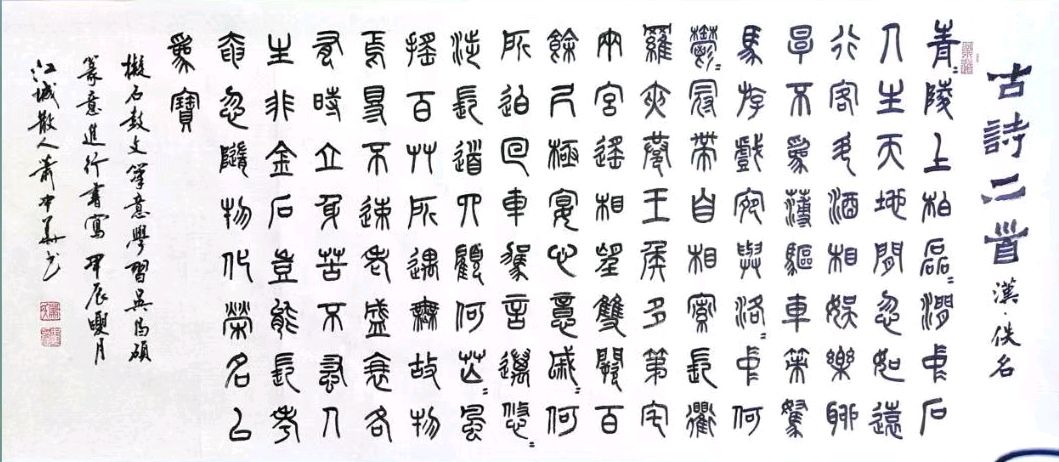 古詩二首 漢·佚名
青〻陵上柏磊〻澗中石
人生天地間忽如遠
行客斗酒相娛樂聊
厚不為薄驅車策駑
馬遊戲宛與洛〻中何
鬱〻冠帶自相索長衢
羅夾巷王侯多第宅
兩宮遙相望雙闕百
餘尺極宴心意戚〻何
所迫回車駕言邁悠〻
涉長道四顧何茫〻風
搖百艸所遇無故物
焉得不速老盛衰各
有時立身苦不早人
生非金石豈能長考
奄忽隨物化榮名以
為寶
擬石鼓文筆意學習吳昌碩
篆意進行書寫 甲辰月
江城散人蕭中華書